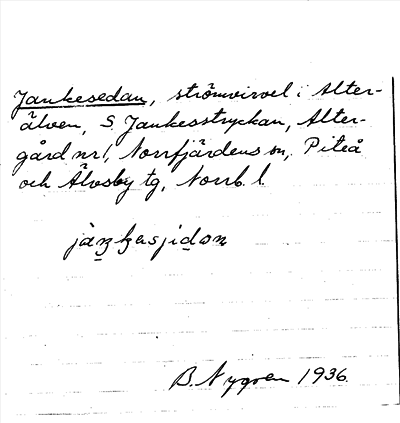 Jankesedan, strömvirvel i Alter-
älven, S. Jankesstryckan, Alter-
gård nr 1, Norrfjärdens sn, Piteå
och Älvsby tg, Norrb. l.
jàŋkasjidan
B. Nygren 1936.